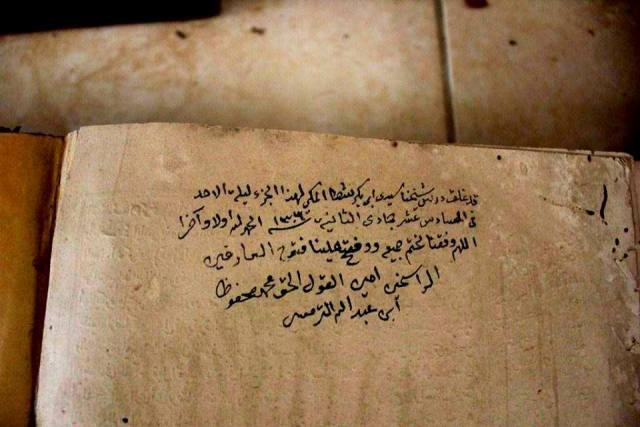 قد غلق درس شيخنا سيدى ابى بكر شطا المكى لهذا الجزء ليلة الاحد
فى السادس عشر جمادى الثانى سنة الحمد لله اولا وآخرا
اللهم وفقنا لختم جميعه وفتح علينا فتوح العارفين
الراسخين امين القول الحق محمد محفوظ
عبد الله الترمسى